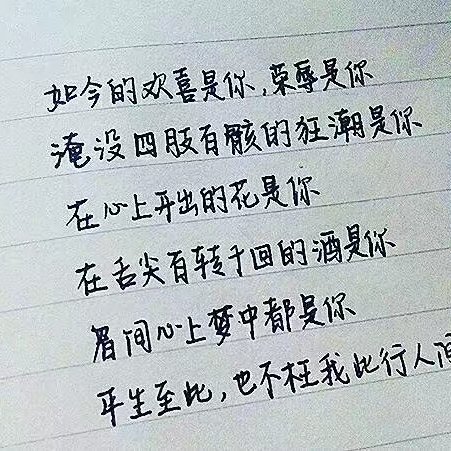 如今的欢喜是你,荣辱是你
淹没四肢百骸的狂潮是你
在心上开出的花是你
在舌尖百转千回的酒是你
眉间心上梦中都是你
平生至此,也不枉我此行人间